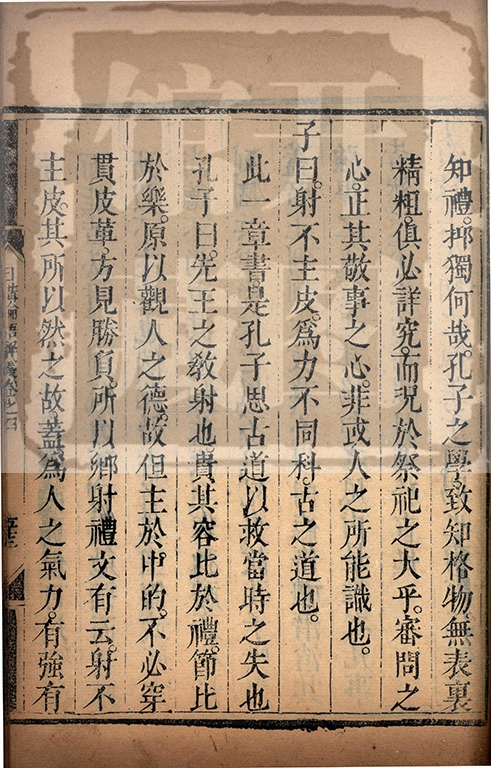 知禮。抑獨何哉。孔子之學。致知格物無表裏
精粗。俱必詳究。而況於祭祀之大乎。審問之
心。正其敬事之心。非或人之所能識也。
子曰。射不主皮。爲力不同科。古之道也。
此一章書是孔子思古道以救當時之失也
孔子曰。先王之教射也貴其容比於禮。節比
於樂。原以觀人之德。故但主於中的。不必穿
貫皮革方見勝負。所以鄉射禮文有云。射不
主皮。其所以然之故蓋爲人之氣力。有強有